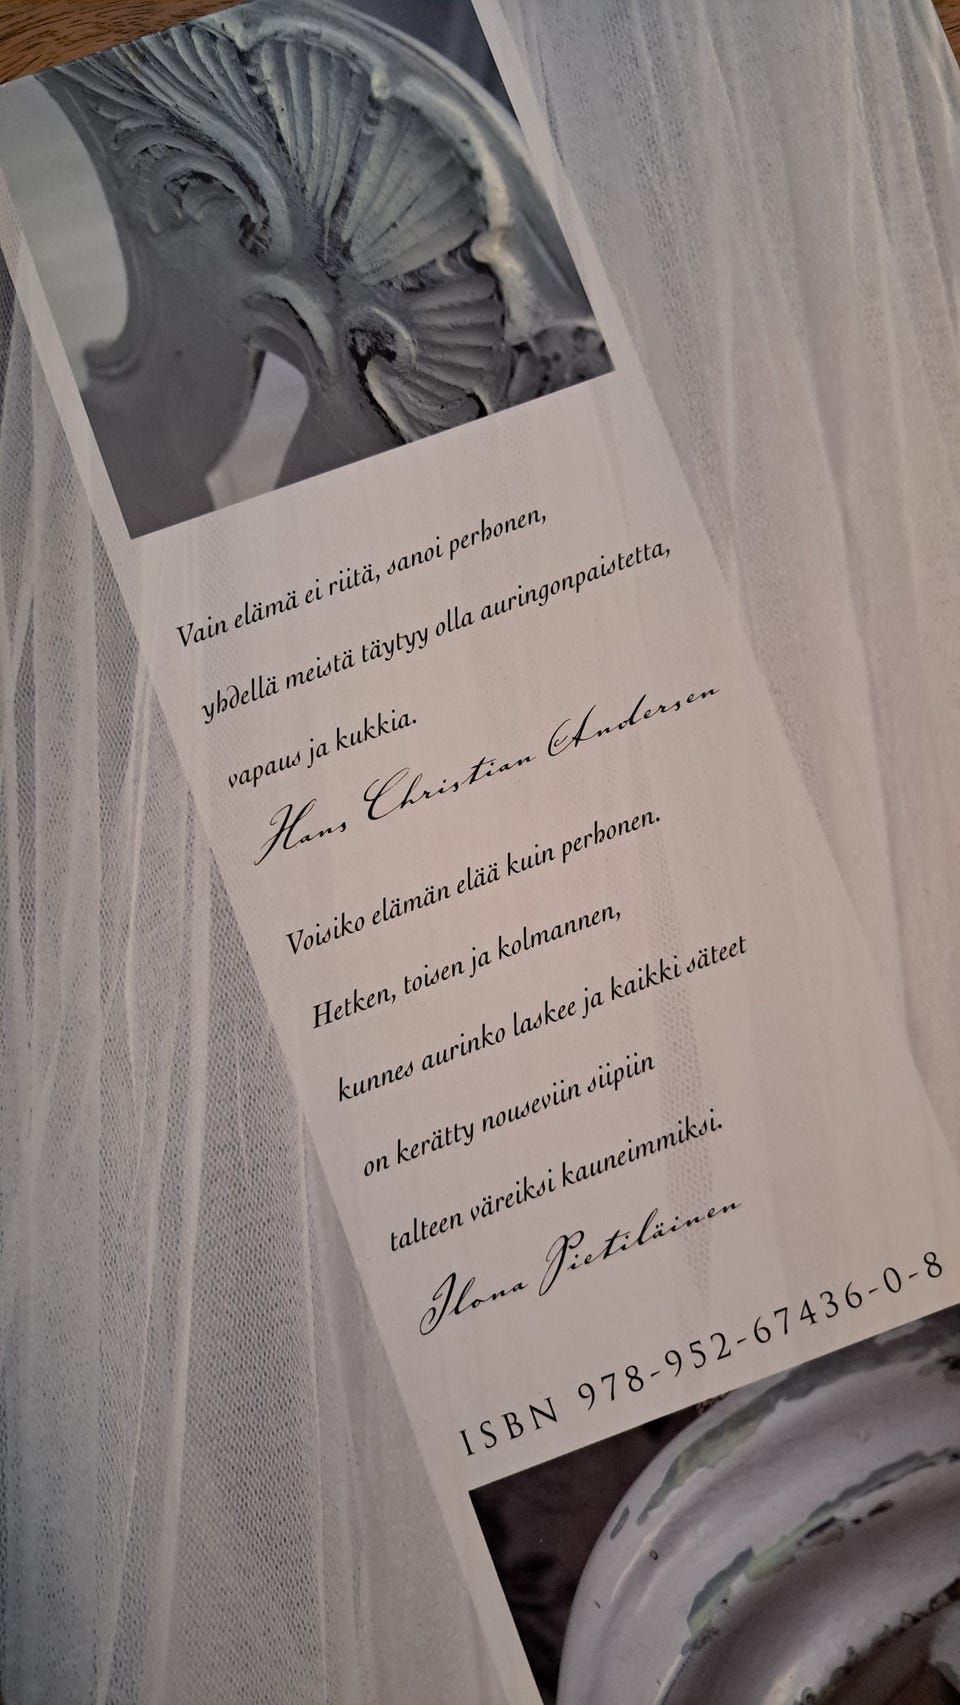 Vain elämä ei riitä, sanoi perhonen,
yhdellä meistä täytyy olla auringonpaistetta,
vapaus ja kukkia.
Hans Christian Andersen
Voisiko elämän elää kuin perhonen.
Hetken, toisen ja kolmannen,
kunnes aurinko laskee ja kaikki säteet
on kerätty nouseviin siipiin
talteen väreiksi kauneimmiksi.
Ilona Pietiläinen
ISBN 978-952-67436-0-8